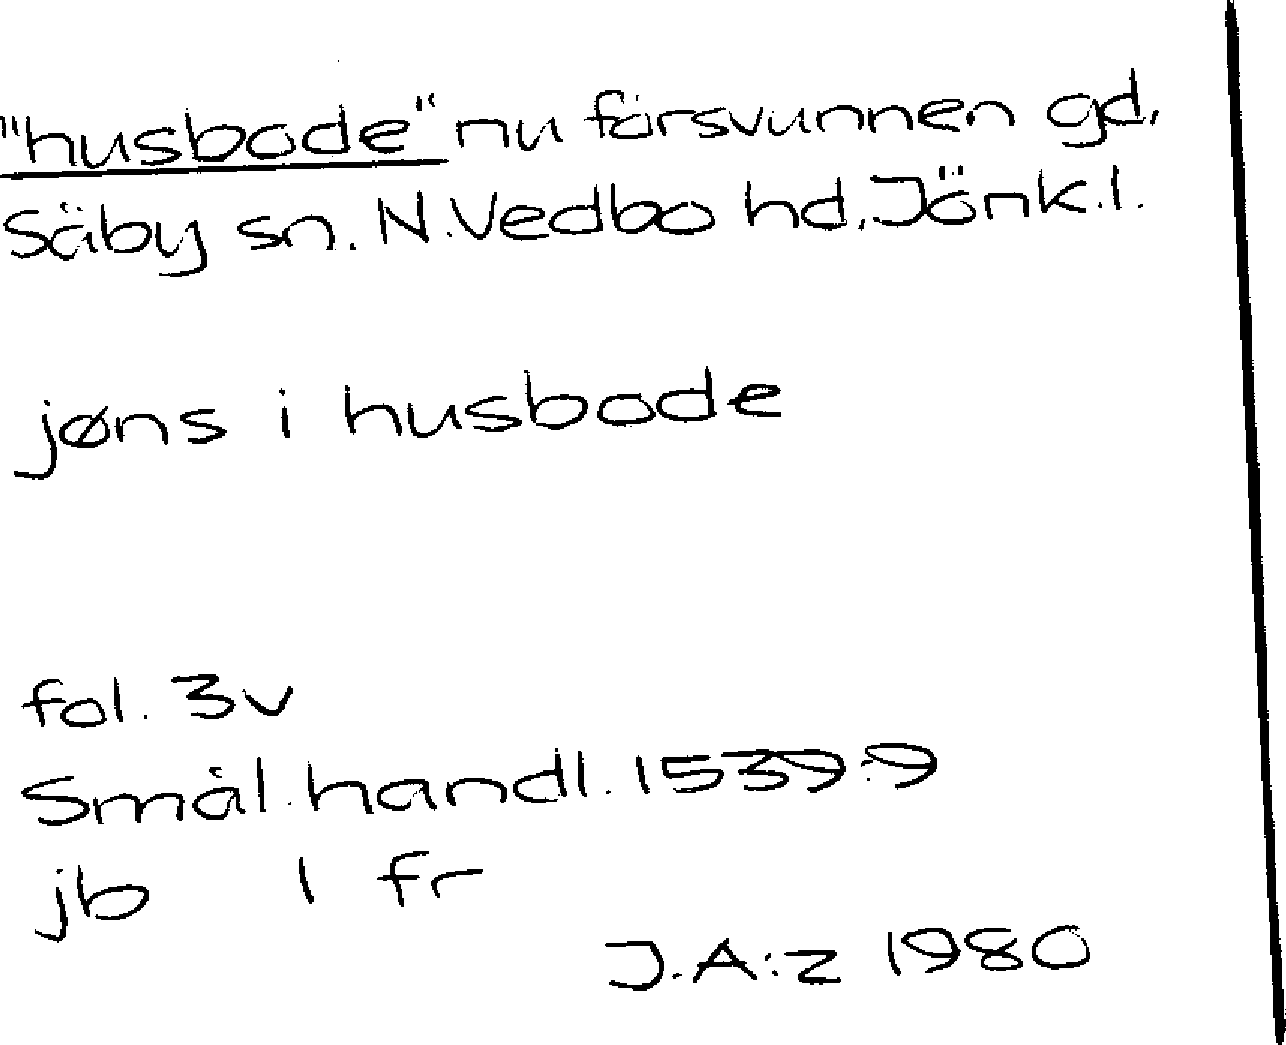 "husbode" nu försvunnen gd.
Säby sn. N.Vedbo hd. Jönk.l.
jøns i husbode
fol. 3v
Smål. handl. 1539:9
jb 1 fr
J.A:z 1980